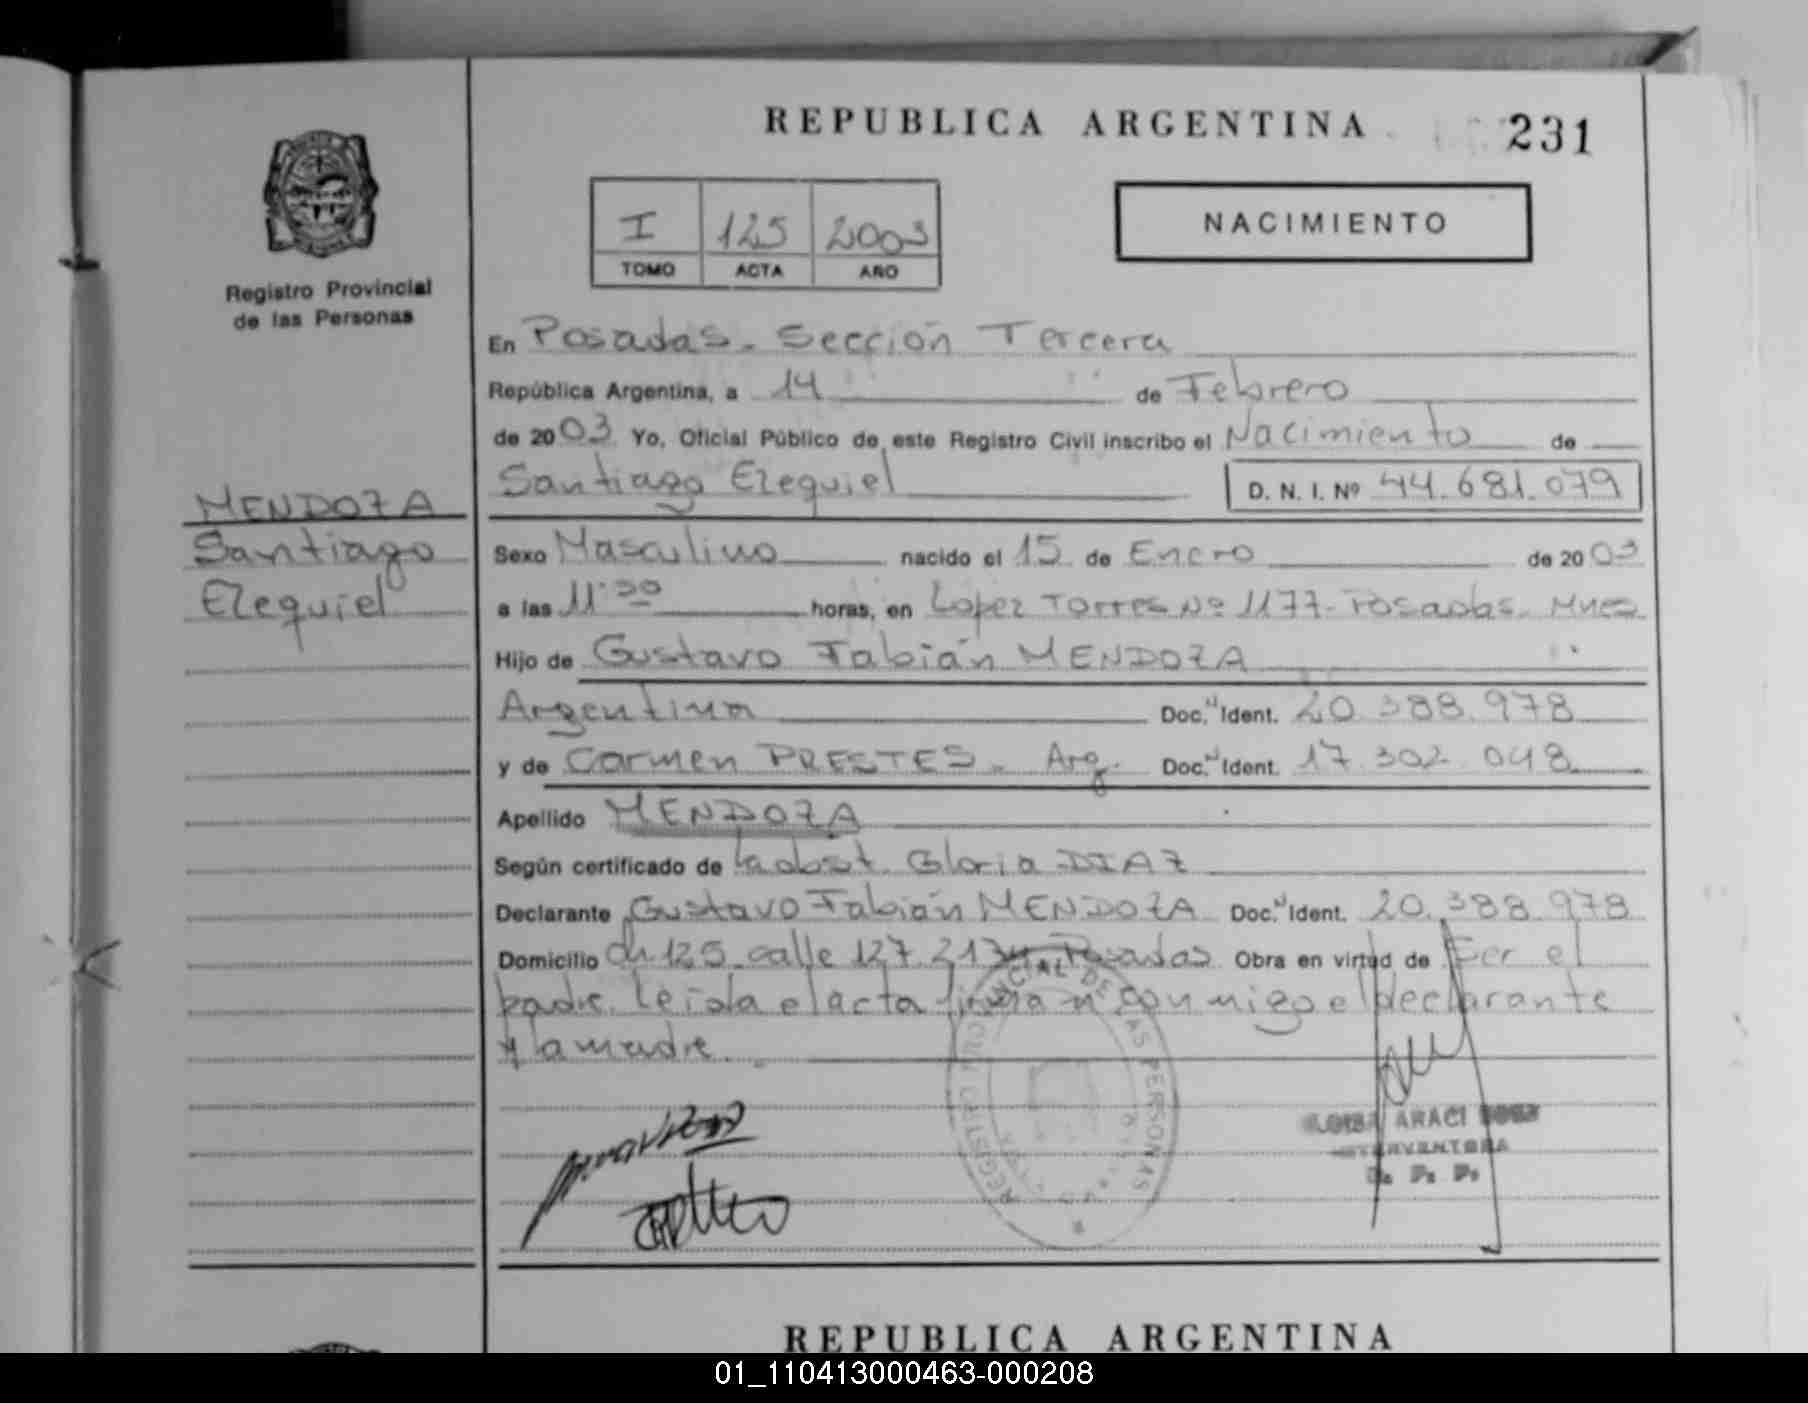 REPUBLICA ARGENTINA
231
I 125 2003
TOMO ACTA AÑO
NACIMIENTO
Registro Provincial
de las Personas
En Posadas - Sección Tercera
República Argentina, a 14 de Febrero
de 2003 Yo, Oficial Público de este Registro Civil inscribo el Nacimiento de
Santiago Ezequiel D. N. I. Nº 44.681.079
MENDOZA
Santiago
Ezequiel
Sexo Masculino nacido el 15 de Enero de 2003
a las 11:30 horas, en Lopez Torres Nº 1177 - Posadas - Mnes
Hijo de Gustavo Fabián MENDOZA
Argentina Doc. N Ident. 20.388.978
y de Carmen PRESTES - Arg. Doc. N Ident. 17.302.048
Apellido MENDOZA
Según certificado de la obst. Gloria DIAZ
Declarante Gustavo Fabián MENDOZA Doc. N Ident. 20.388.978
Domicilio Ch 125 - calle 127 - Posadas Obra en virtud de Ser el
padre. Leida el acta firman conmigo el declarante
y la madre.
REGISTRO PROVINCIAL DE LAS PERSONAS
ARACI
INTERVENTORA
R. P. P.
REPUBLICA ARGENTINA
01_110413000463-000208